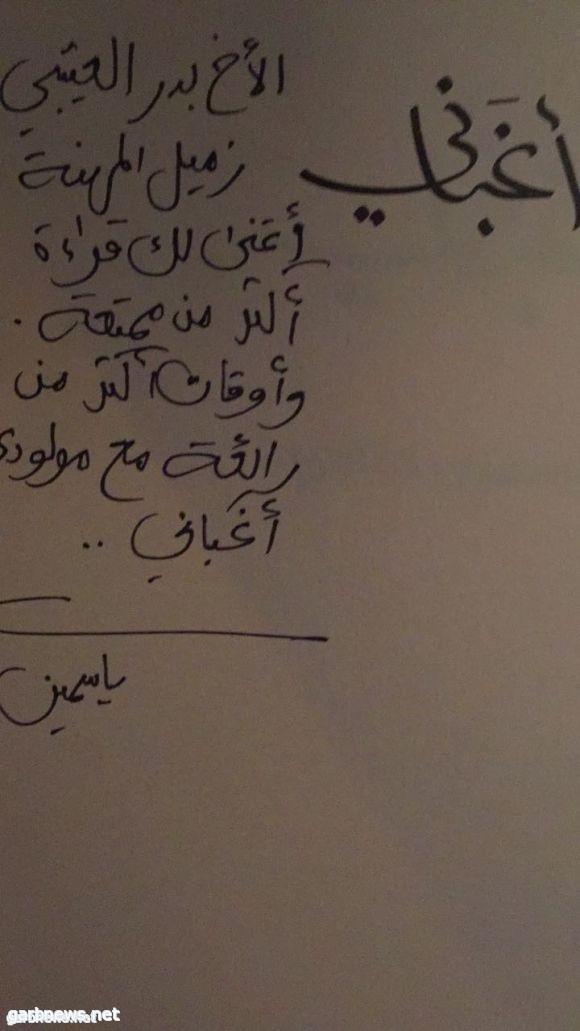 أغَباني
الأخ بدر العتيبي
زميل المهنة
أتمنى لك قراءة
أكثر من ممتعة .
وأوقات أكثر من
رائعة مع مولودي
أغباني ..
ياسمين
garbnews.net